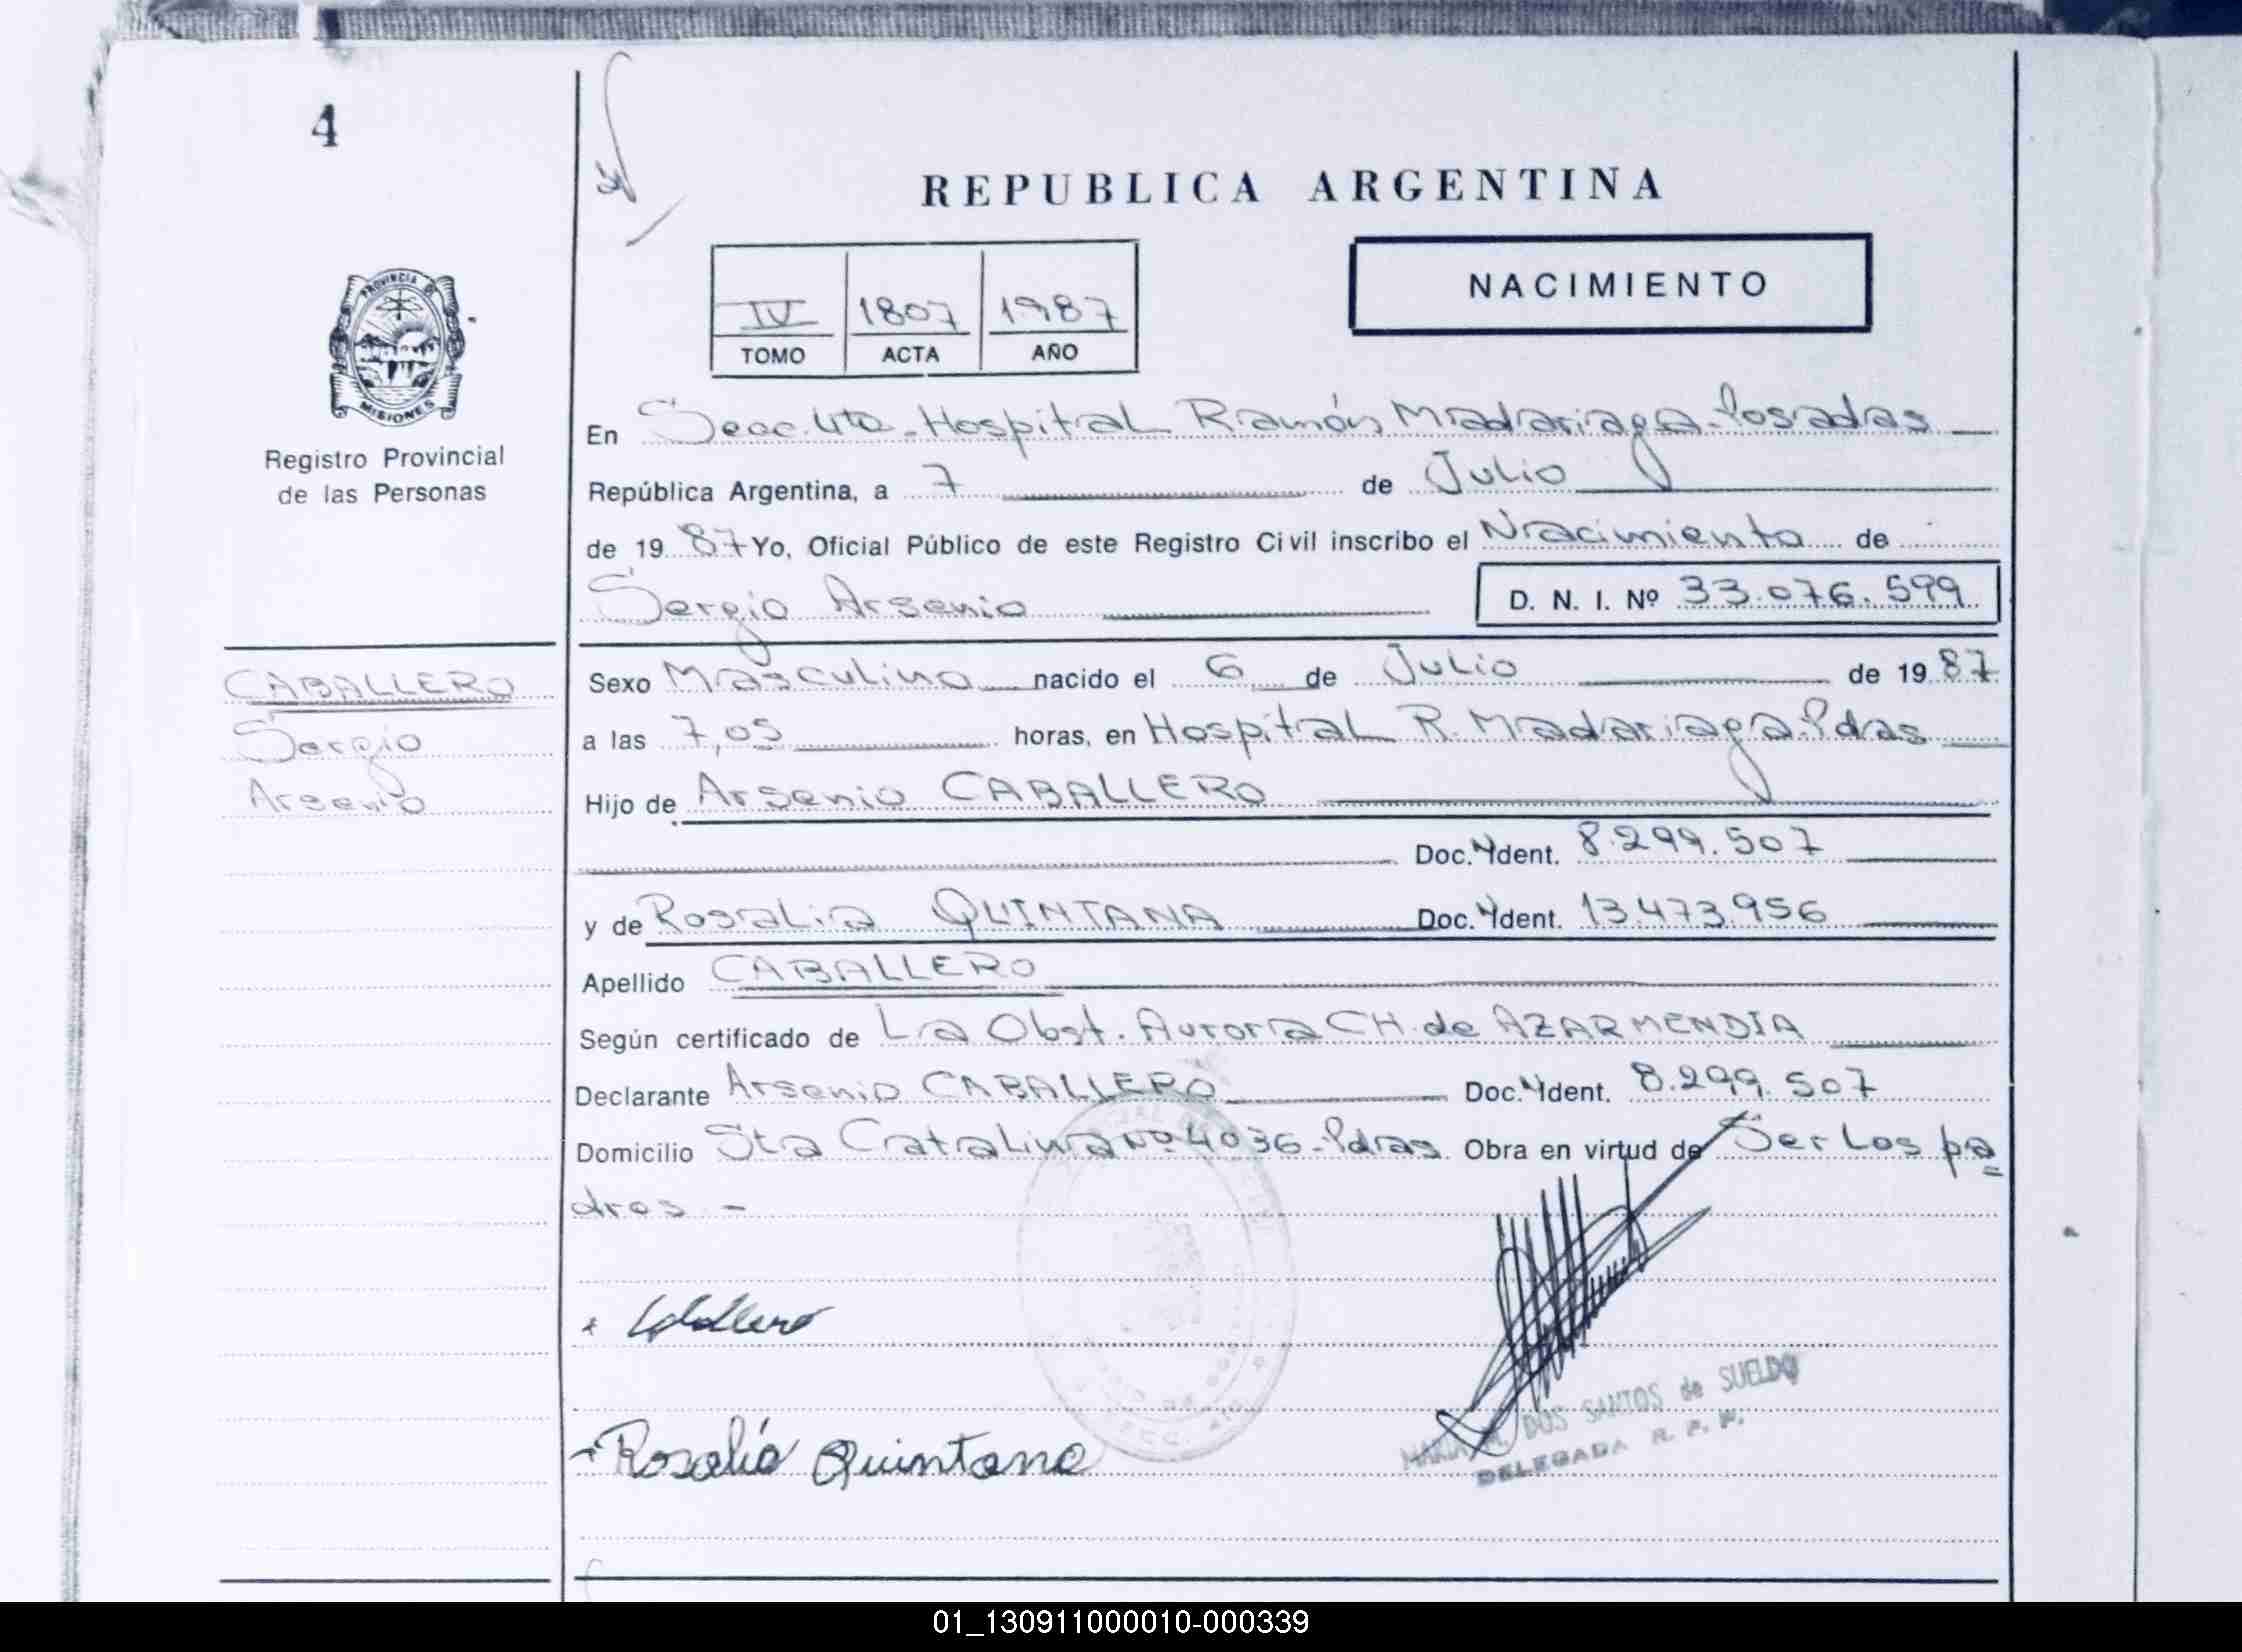 4
REPUBLICA ARGENTINA
NACIMIENTO
IV 1807 1987
TOMO ACTA AÑO
PROVINCIA DE
MISIONES
Registro Provincial
de las Personas
En Secc. 4ta - Hospital Ramón Madariaga - Posadas
República Argentina, a 7 de Julio
de 19 87 Yo, Oficial Público de este Registro Civil inscribo el Nacimiento de
Sergio Arsenio D. N. I. Nº 33.076.599
CABALLERO
Sergio
Arsenio
Sexo Masculino nacido el 6 de Julio de 19 87
a las 7,05 horas, en Hospital R. Madariaga. Pdas
Hijo de Arsenio CABALLERO
Doc. Ident. 8.299.507
y de Rosalia QUINTANA Doc. Ident. 13.473.956
Apellido CABALLERO
Según certificado de La Obst. Aurora CH. de AZARMENDIA
Declarante Arsenio CABALLERO Doc. Ident. 8.299.507
Domicilio Sta Catalina Nº 4036 - Pdas. Obra en virtud de Ser los pa
dres -
Caballero
Rosalía Quintana
MARIA M. DOS SANTOS de SUELDO
DELEGADA R. P. P.
01_130911000010-000339